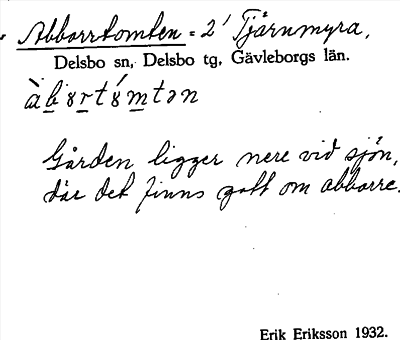 Abborrtomten = 2' Tjärnmyra.
Delsbo sn, Delsbo tg, Gävleborgs län.
àb̲ɤr̲tɤ́m̲tən
Gården ligger nere vid sjön,
där det finns gott om abborre.
Erik Eriksson 1932.